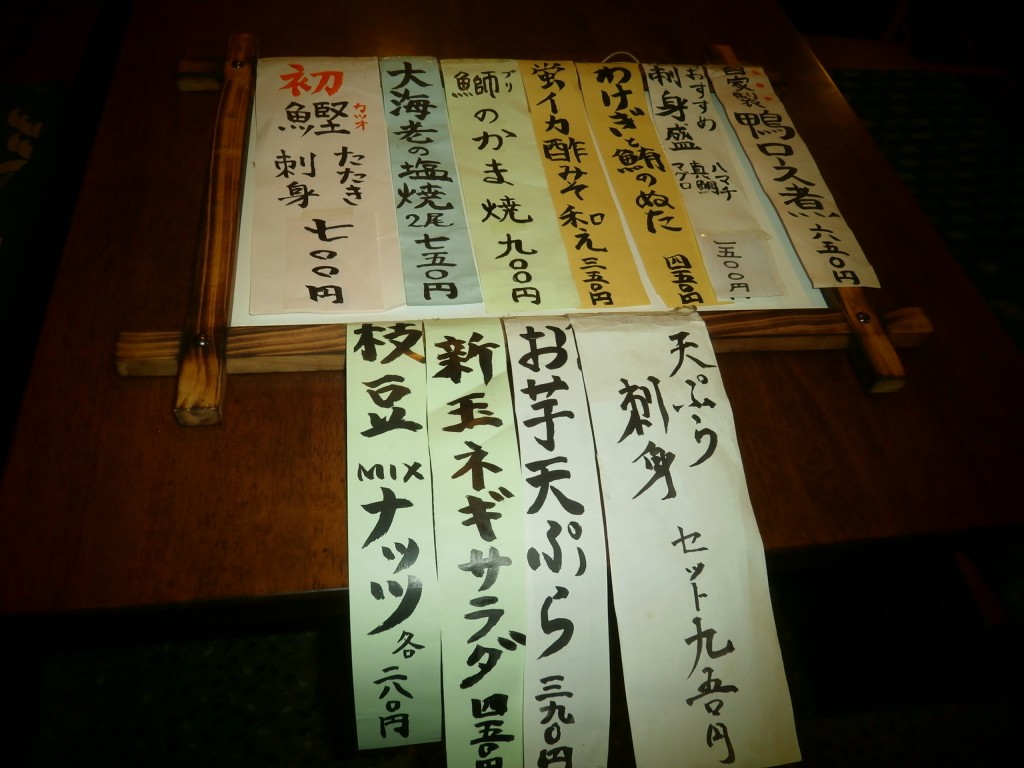 自家製
鴨ロース煮
六五〇円
おすすめ
刺身盛
ハマチ
真鯛
マグロ
一五〇〇円
わけぎと鮪のぬた
四五〇円
蛍イカ酢みそ和え
三五〇円
鰤のかま焼
ブリ
九〇〇円
大海老の塩焼
2尾
七五〇円
初鰹
カツオ
たたき
刺身
七〇〇円
天ぷら
刺身
セット九五〇円
お芋天ぷら
三九〇円
新玉ネギサラダ
四五〇円
枝豆
MIXナッツ
各二八〇円